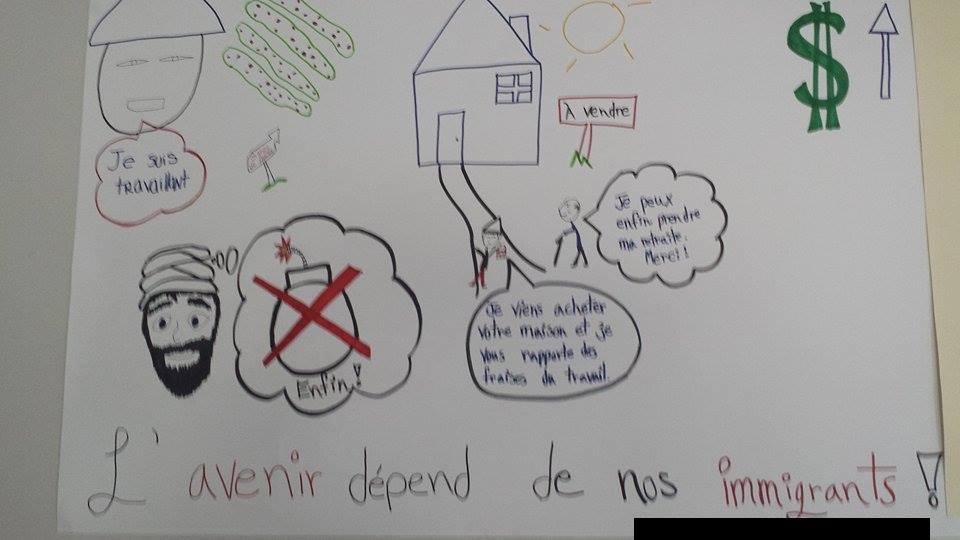 $
À vendre
Je suis
travaillant
Je peux
enfin prendre
ma retraite.
Merci!
Je viens acheter
votre maison et je
vous rapporte des
fraises du travail.
Enfin!
L'avenir dépend de nos immigrants!